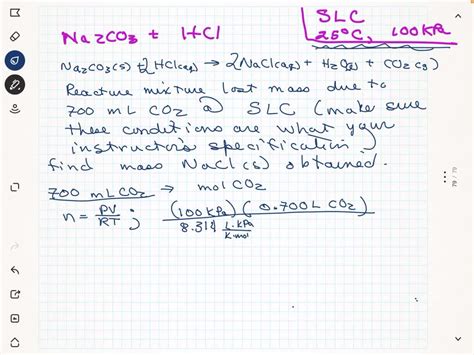 Na2CO3 + HCl
SLC
25°C, 100kPa
Na2CO3(s) + 2HCl(aq) → 2NaCl(aq) + H2O(l) + CO2(g)
Reacture mixture lost mass due to
700 mL CO2 @ SLC (make sure
these conditions are what your
instructor's specification)
find mass NaCl(s) obtained.
700 mL CO2 → mol CO2
n = PV/RT ; (100kPa)(0.700L CO2)
8.314 L·kPa/K·mol